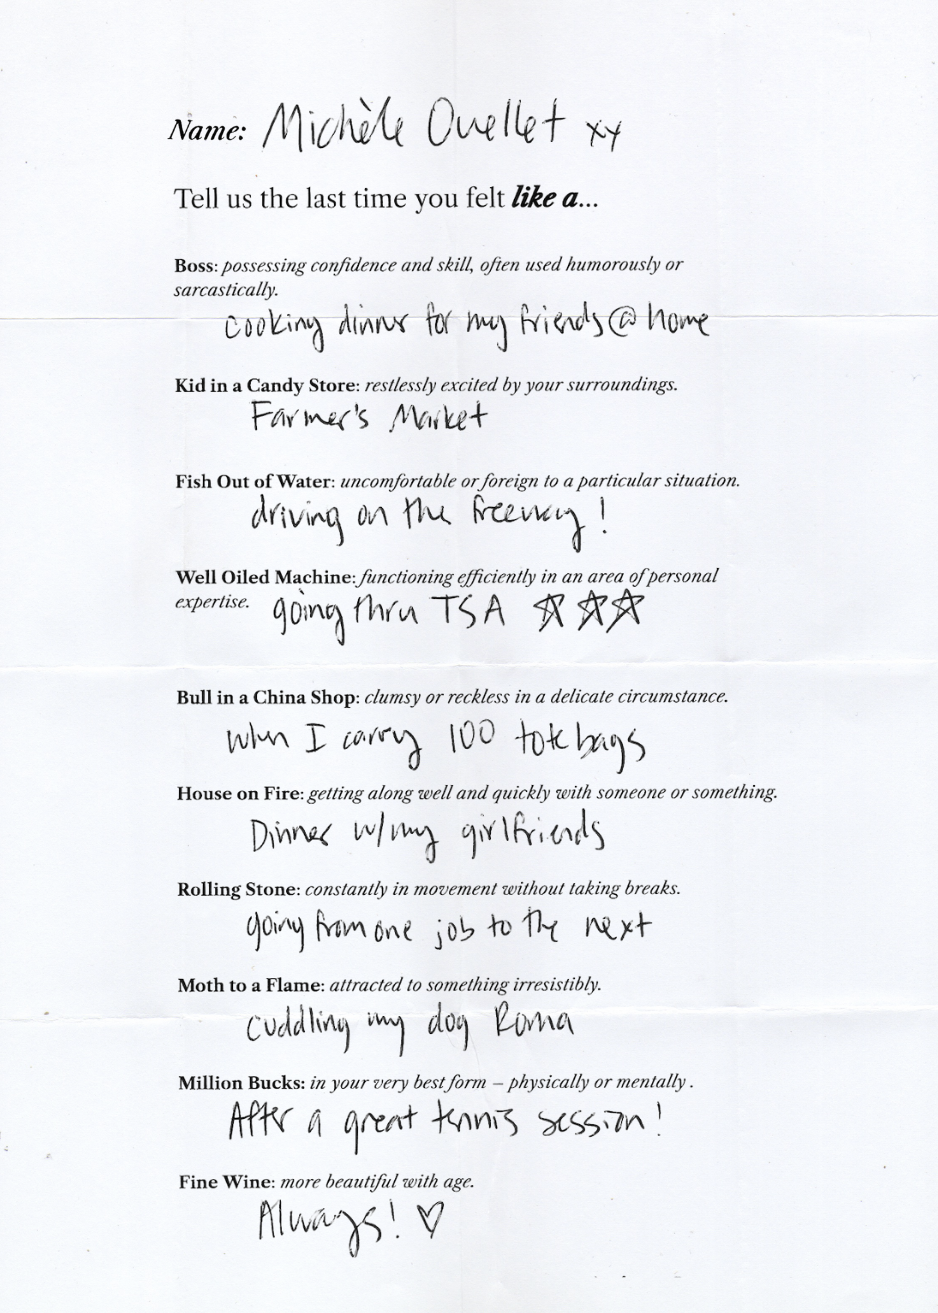 Name: Michèle Ouellet xx
Tell us the last time you felt like a...
Boss: possessing confidence and skill, often used humorously or
sarcastically.
cooking dinner for my friends @ home
Kid in a Candy Store: restlessly excited by your surroundings.
Farmer's Market
Fish Out of Water: uncomfortable or foreign to a particular situation.
driving on the freeway!
Well Oiled Machine: functioning efficiently in an area of personal
expertise. going thru TSA ☆☆☆
Bull in a China Shop: clumsy or reckless in a delicate circumstance.
when I carry 100 tote bags
House on Fire: getting along well and quickly with someone or something.
Dinner w/ my girlfriends
Rolling Stone: constantly in movement without taking breaks.
going from one job to the next
Moth to a Flame: attracted to something irresistibly.
cuddling my dog Roma
Million Bucks: in your very best form – physically or mentally .
After a great tennis session!
Fine Wine: more beautiful with age.
Always! ♡